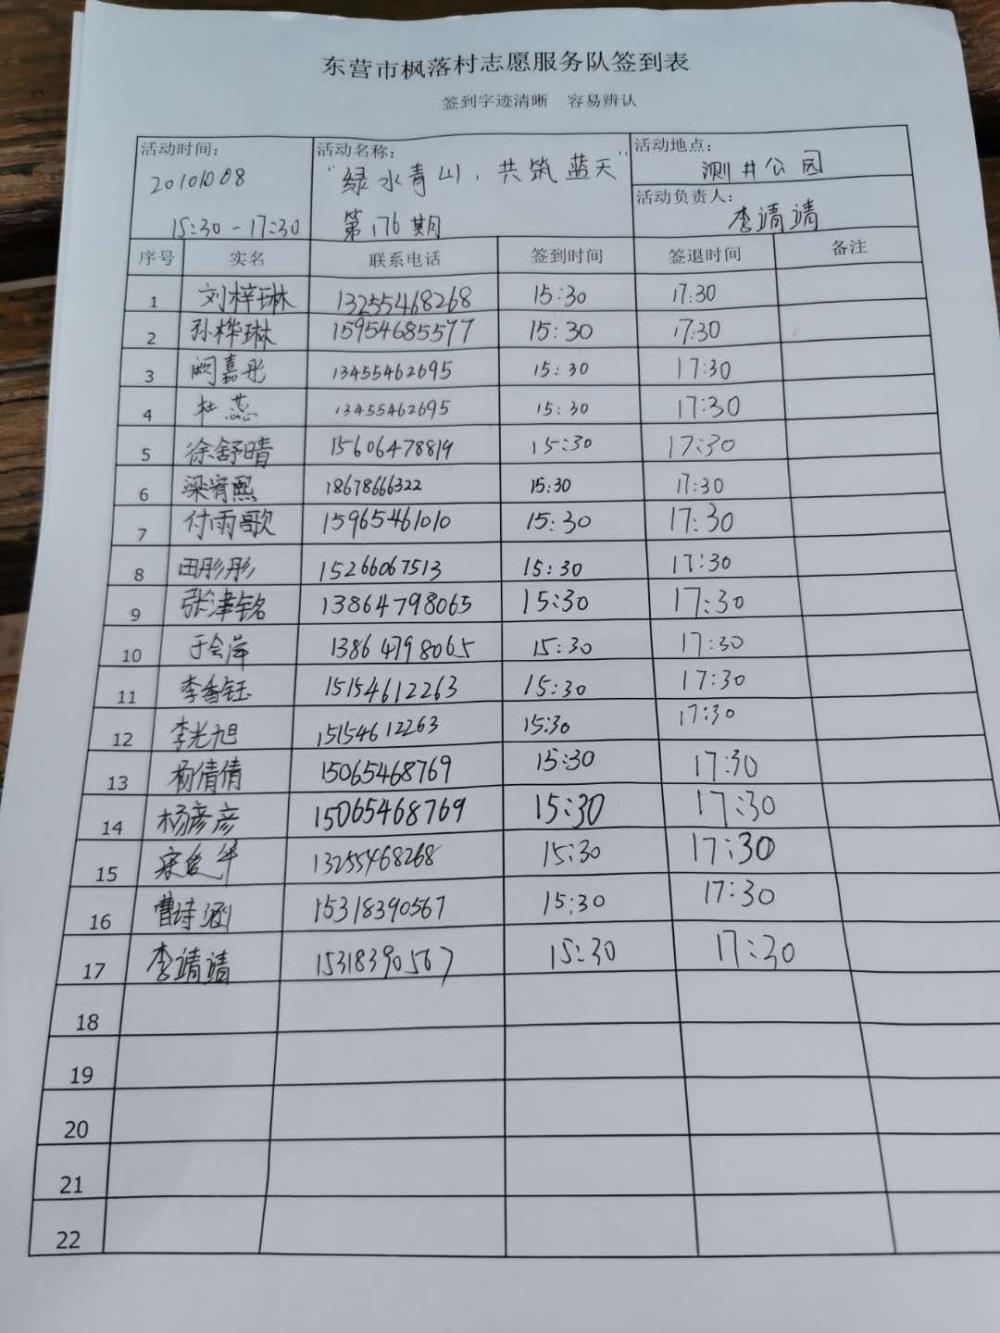 东营市枫落村志愿服务队签到表
签到字迹清晰 容易辨认
活动时间： 活动名称： 活动地点：
20101008 "绿水青山，共筑蓝天" 测井公园
活动负责人：
15:30-17:30 第176期 李靖靖
序号 实名 联系电话 签到时间 签退时间 备注
1 刘梓琳 13255468268 15:30 17:30
2 孙桦琳 15954685577 15:30 17:30
3 阙嘉彤 13455462695 15:30 17:30
4 杜蕊 13455462695 15:30 17:30
5 徐舒晴 15606478819 15:30 17:30
6 梁宥熙 18678666322 15:30 17:30
7 付雨歌 15965461010 15:30 17:30
8 田彤彤 15266067513 15:30 17:30
9 张津铭 13864798065 15:30 17:30
10 于会萍 13864798065 15:30 17:30
11 李香钰 15154612263 15:30 17:30
12 李光旭 15154612263 15:30 17:30
13 杨倩倩 15065468769 15:30 17:30
14 杨彦彦 15065468769 15:30 17:30
15 宋俊华 13255468268 15:30 17:30
16 曹诗涵 15318390567 15:30 17:30
17 李靖靖 15318390567 15:30 17:30
18
19
20
21
22